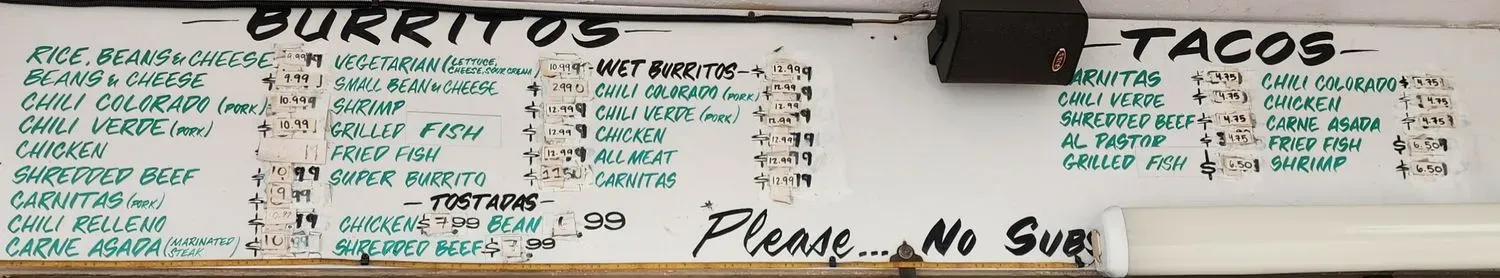 BURRITOS
RICE, BEANS & CHEESE 9.99
BEANS & CHEESE $ 9.99
CHILI COLORADO (PORK) 10.99
CHILI VERDE (PORK) $ 10.99
CHICKEN
SHREDDED BEEF $ 10.99
CARNITAS (PORK) $
CHILI RELLENO $
CARNE ASADA (MARINATED STEAK $ 10.99
VEGETARIAN (LETTUCE, CHEESE, SOUR CREAM) 10.99
SMALL BEAN & CHEESE $
SHRIMP $ 12.99
GRILLED FISH $ 12.99
FRIED FISH $ 12.99
SUPER BURRITO $
-TOSTADAS-
CHICKEN $ 7.99 BEAN .99
SHREDDED BEEF $ 7.99
-WET BURRITOS- $ 12.99
CHILI COLORADO (PORK) $ 12.99
CHILI VERDE (PORK) $ 12.99
CHICKEN $ 12.99
ALL MEAT $ 12.99
CARNITAS $ 12.99
Please... No SUBS
-TACOS-
ARNITAS $ 4.75
CHILI VERDE $ 4.75
SHREDDED BEEF $ 4.75
AL PASTOR $ 4.75
GRILLED FISH $ 6.50
CHILI COLORADO $ 4.75
CHICKEN $ 4.75
CARNE ASADA $ 4.75
FRIED FISH $ 6.50
SHRIMP $ 6.50